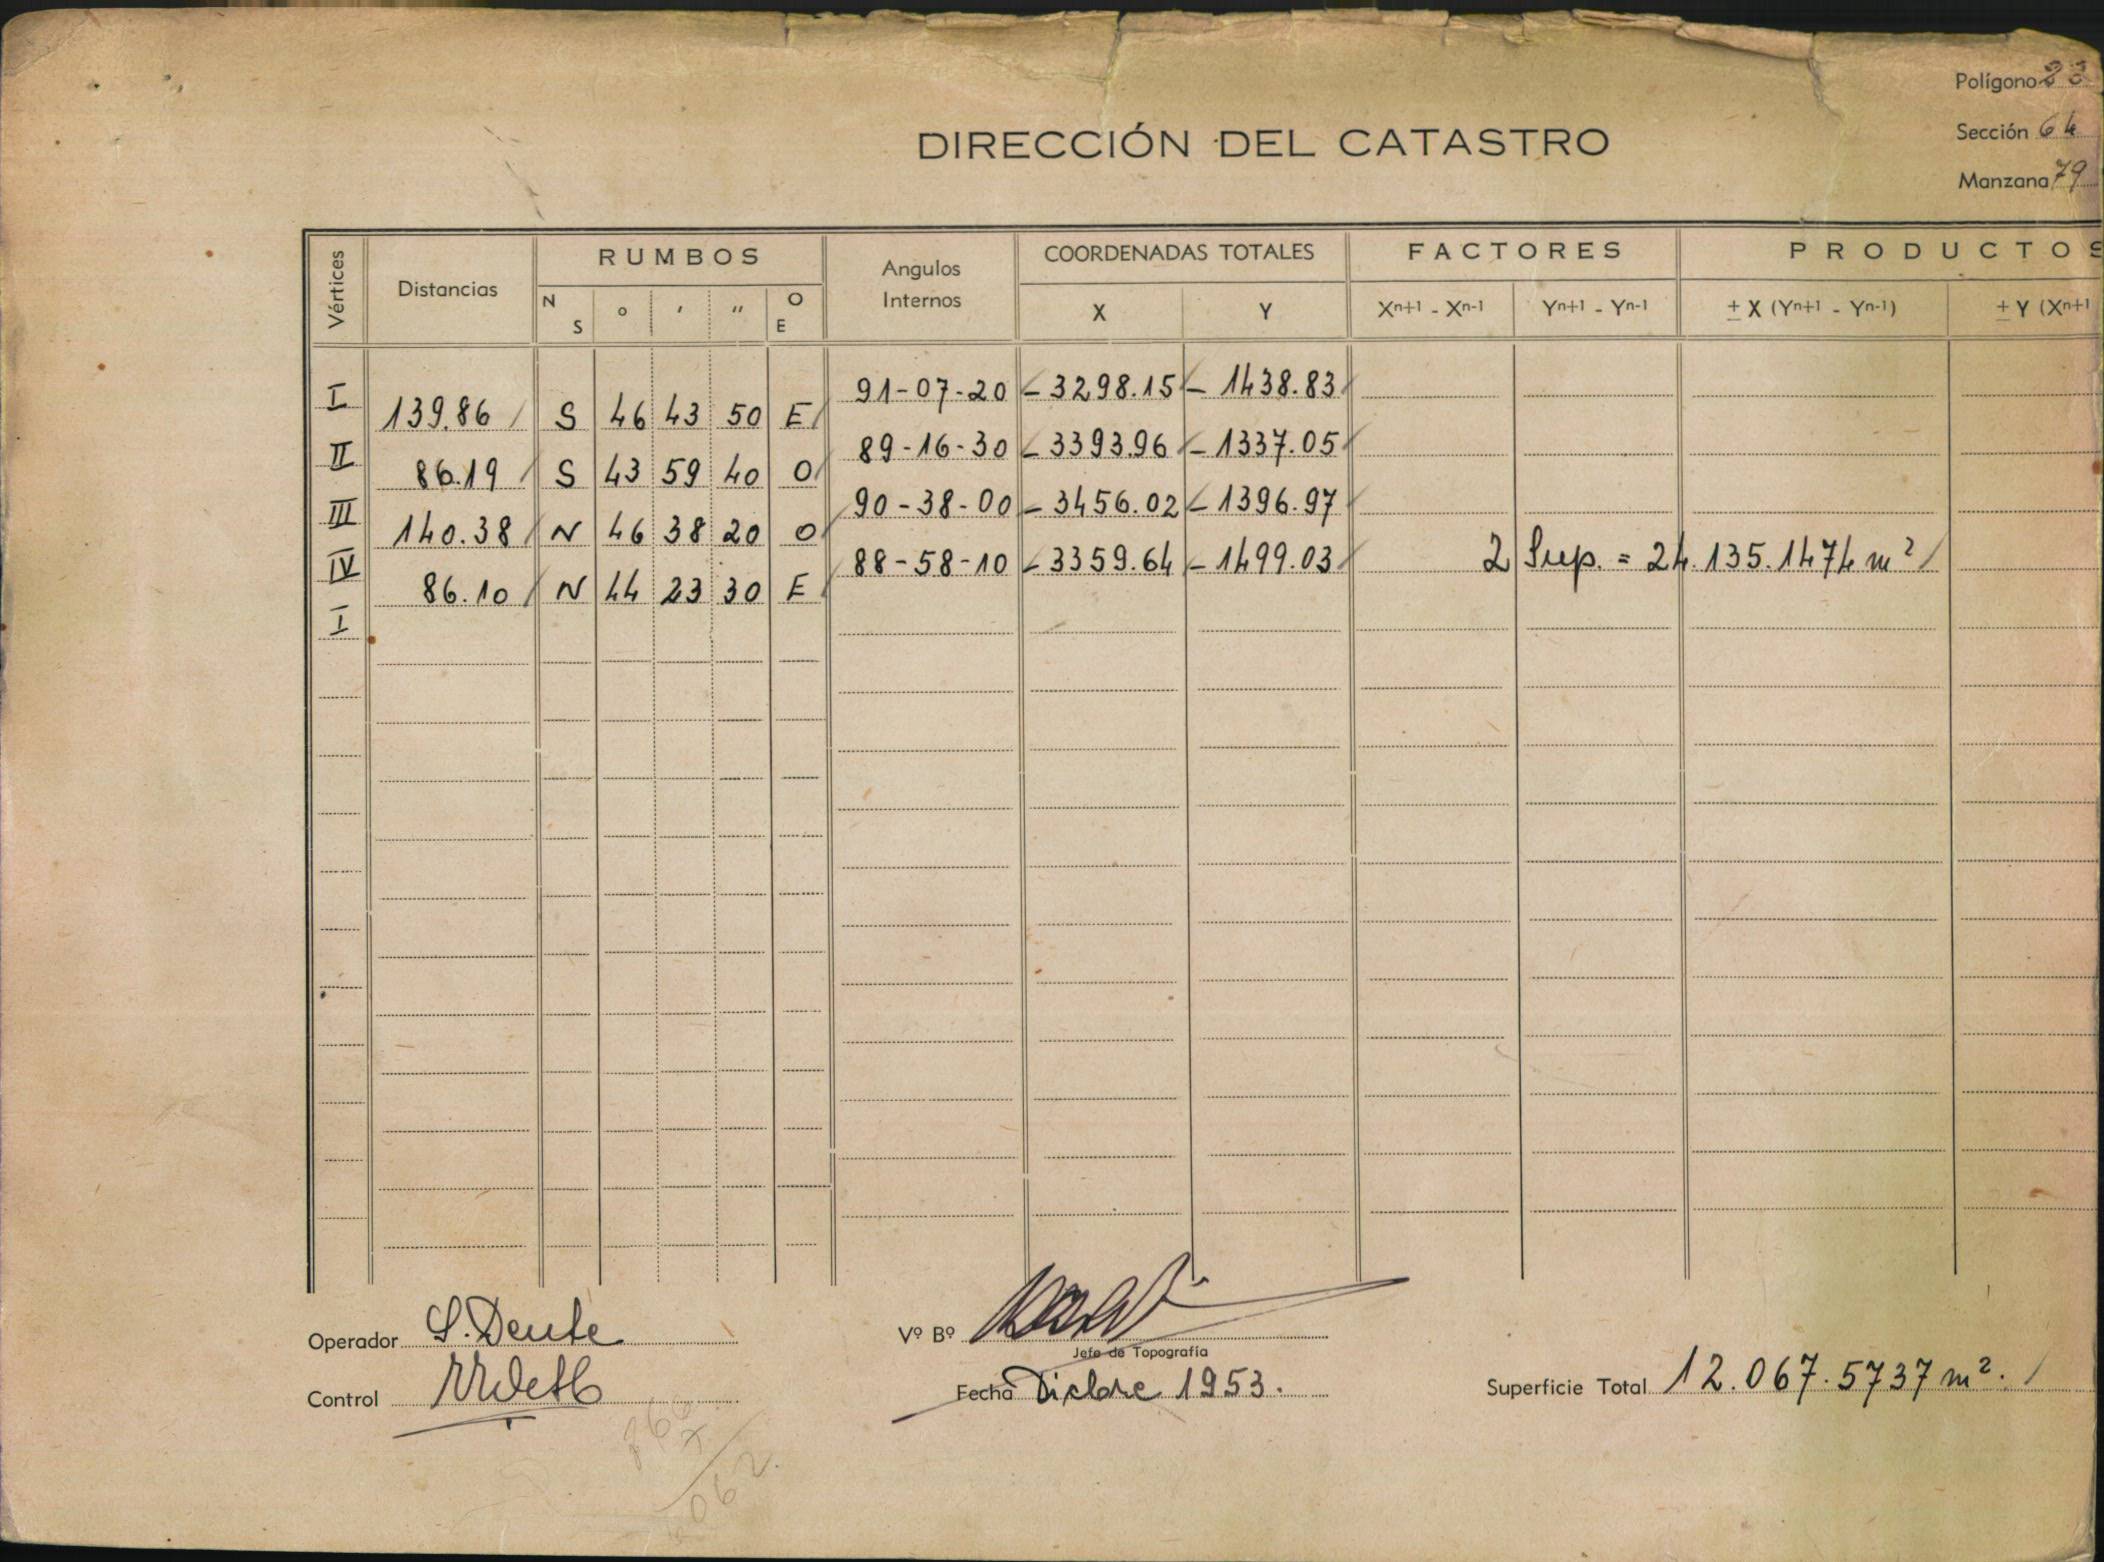 Polígono 23
Sección 64
Manzana 79
DIRECCIÓN DEL CATASTRO
Vértices Distancias RUMBOS Angulos Internos COORDENADAS TOTALES FACTORES PRODUCTOS
N S ° ' " O E X Y Xn+1 - Xn-1 Yn+1 - Yn-1 ± X (Yn+1 - Yn-1) ± Y (Xn+1
I 91-07-20 - 3298.15 - 1438.83
139.86 S 46 43 50 E
II 89-16-30 - 3393.96 - 1337.05
86.19 S 43 59 40 O
III 90-38-00 - 3456.02 - 1396.97
140.38 N 46 38 20 O
IV 88-58-10 - 3359.64 - 1499.03 2 Sup. = 24.135.1474 m²
86.10 N 44 23 30 E
I
Operador S. Dente Vº Bº
Jefe de Topografía
Control Fecha Dicbre 1953. Superficie Total 12.067.5737 m².